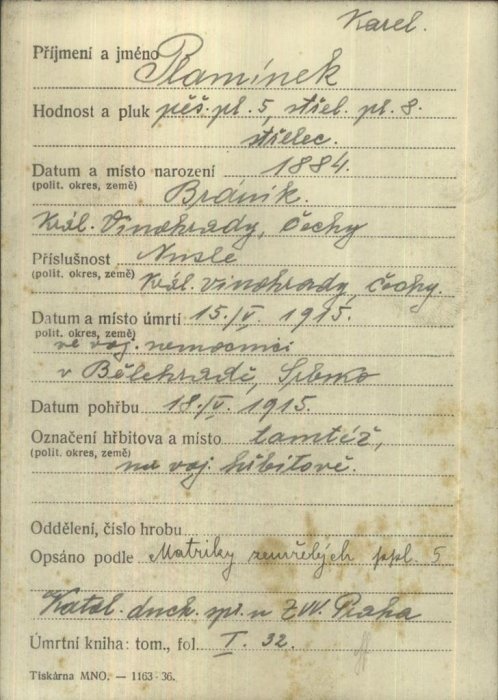 Karel.
Příjmení a jméno Plamínek
Hodnost a pluk pěš. pl. 5, střel. pl. 8.
střelec.
Datum a místo narození 1884.
(polit. okres, země) Bráník.
Král. Vinohrady, Čechy
Příslušnost Nusle
(polit. okres, země) Král. Vinohrady, Čechy.
Datum a místo úmrtí 15./V. 1915.
polit. okres, země) ve voj. nemocnici
v Bělehradě, Srbsko
Datum pohřbu 18./V. 1915.
Označení hřbitova a místo tamtéž,
(polit. okres, země) na voj. hřbitově.
Oddělení, číslo hrobu
Opsáno podle Matriky zemřelých ppl. 5
Katol. duch. spr. u ZVV. Praha
Úmrtní kniha: tom., fol. I. 32.
Tiskárna MNO. — 1163-36.